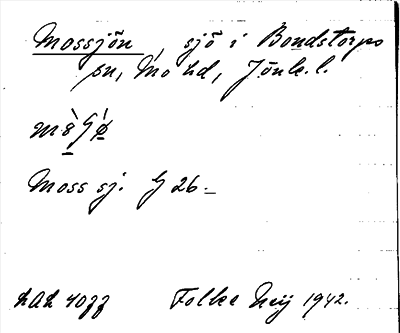 Mossjön, sjö i Bondstorps
sn, Mo hd, Jönk. l.
Moss sj. G 26
LAL 4077 Folke Neij 1942.